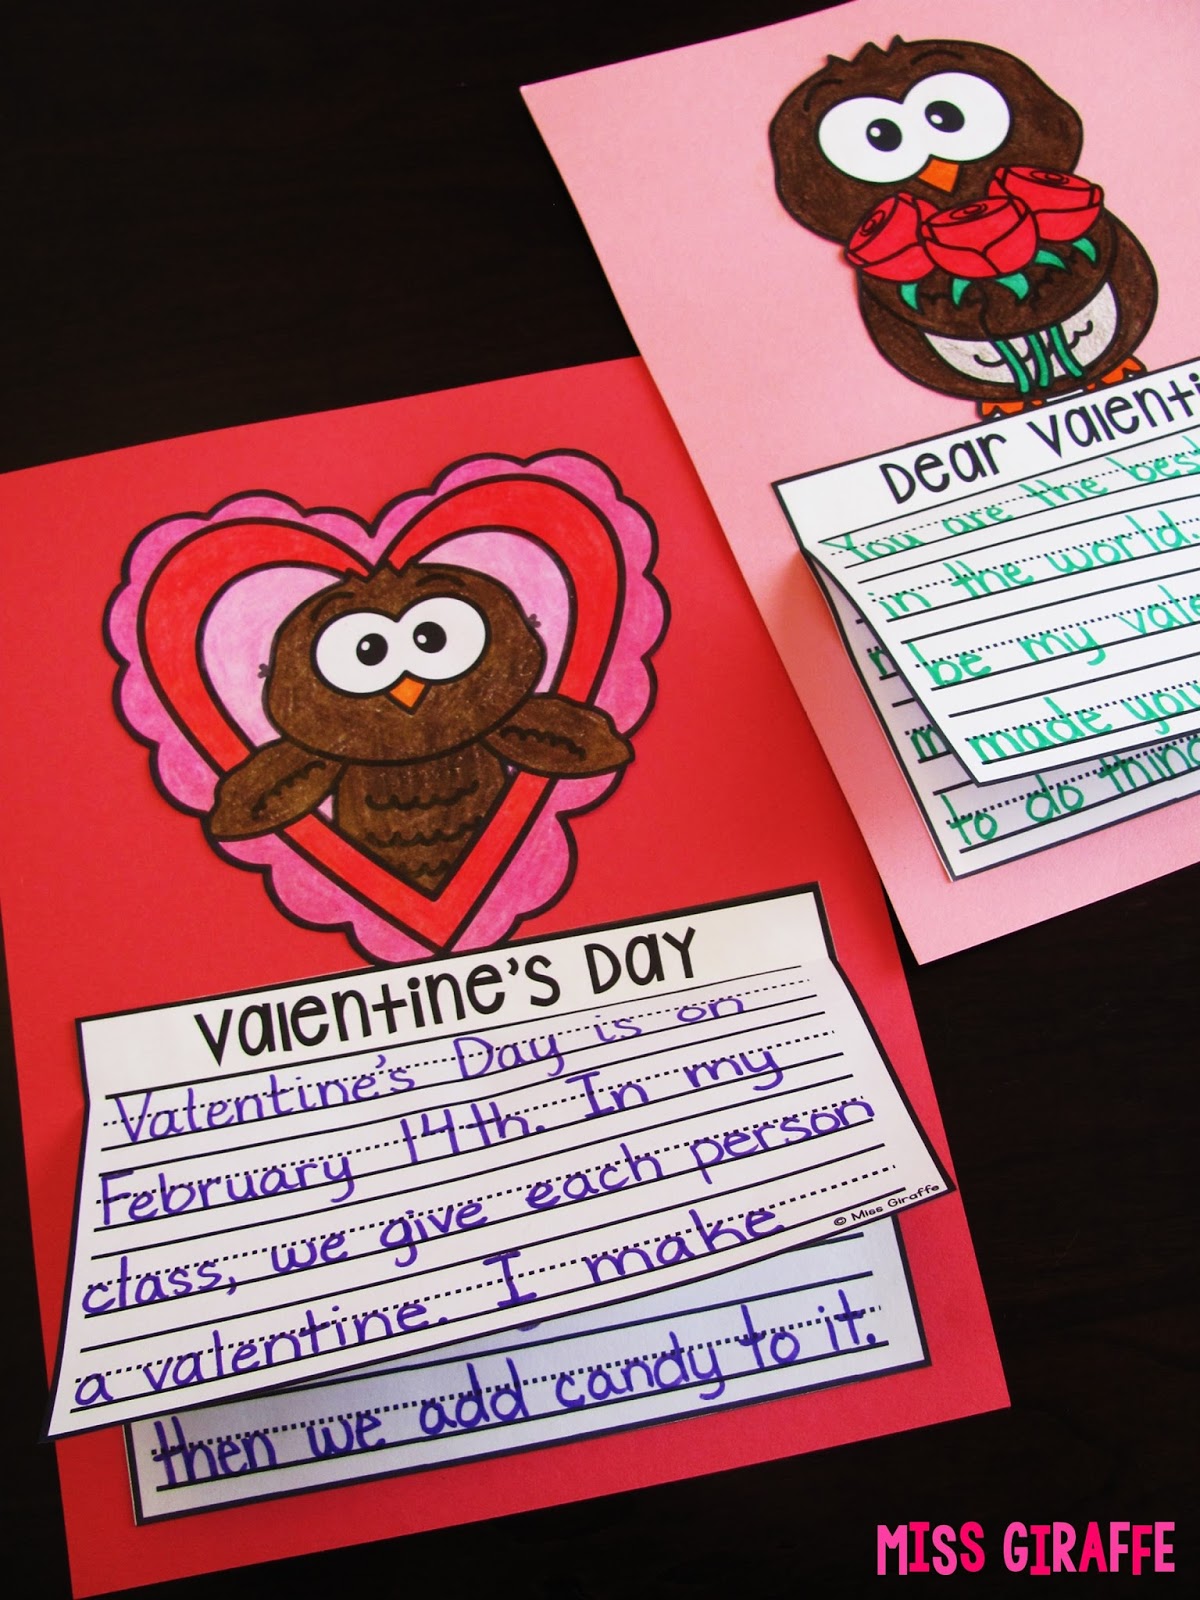 Dear Valenti
You are the best
in the world.
be my vale
made you
to do thing
Valentine's Day
Valentine's Day is on
February 14th. In my
class, we give each person
a valentine. I make
© Miss Giraffe
then we add candy to it.
MISS GIRAFFE